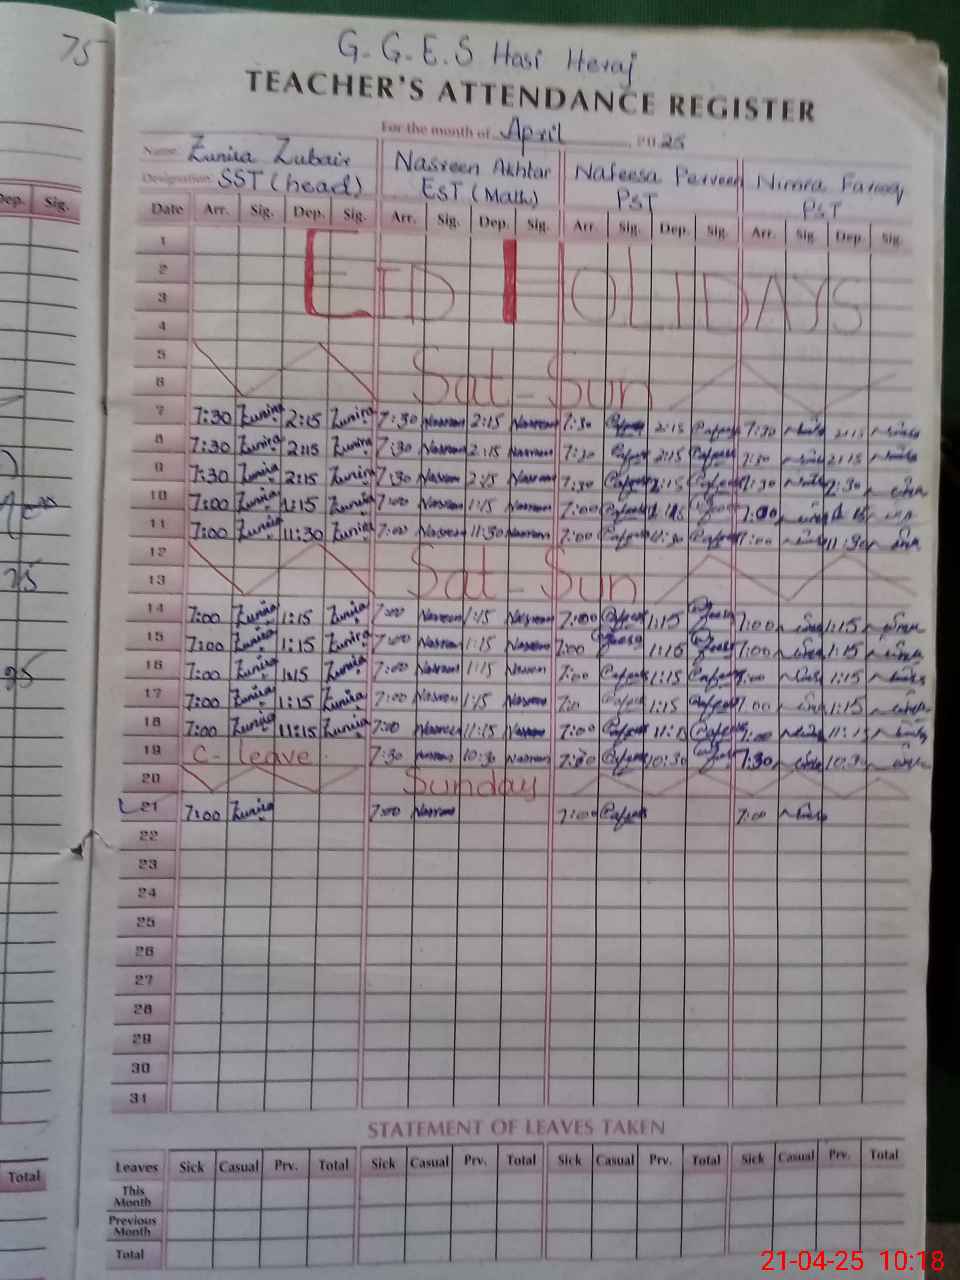 75
G.G.E.S Hasi Heraj
TEACHER'S ATTENDANCE REGISTER
For the month of April 2025
Name: Zunira Zubair Nasreen Akhtar Nafeesa Perveen Nimra Farooq
Designation: SST (head) EST (Math) PST PST
Dep. Sig.
Date Arr. Sig. Dep. Sig. Arr. Sig. Dep. Sig. Arr. Sig. Dep. Sig. Arr. Sig. Dep. Sig.
1
2
3 EID HOLIDAYS
4
5
6 Sat-Sun
7 7:30 Zunira 2:15 Zunira 7:30 Nasreen 2:15 Nasreen 7:30 2:15 7:30 2:15
8 7:30 Zunira 2:15 Zunira 7:30 Nasreen 2:15 Nasreen 7:30 2:15 7:30 2:15
9 7:30 Zunira 2:15 Zunira 7:30 Nasreen 2:15 Nasreen 7:30 2:15 7:30 2:30
10 7:00 Zunira 1:15 Zunira 7:00 Nasreen 1:15 Nasreen 7:00 1:15 7:00 1:15
11 7:00 Zunira 11:30 Zunira 7:00 Nasreen 11:30 Nasreen 7:00 11:30 7:00 11:30
12
13 Sat-Sun
14 7:00 Zunira 1:15 Zunira 7:00 Nasreen 1:15 Nasreen 7:00 1:15 7:00 1:15
15 7:00 Zunira 1:15 Zunira 7:00 Nasreen 1:15 Nasreen 7:00 1:15 7:00 1:15
16 7:00 Zunira 1:15 Zunira 7:00 Nasreen 1:15 Nasreen 7:00 1:15 7:00 1:15
17 7:00 Zunira 1:15 Zunira 7:00 Nasreen 1:15 Nasreen 1:15 7:00 1:15
18 7:00 Zunira 11:15 Zunira 7:00 Nasreen 11:15 Nasreen 7:00 11:15 7:00 11:15
19 C-leave 7:30 Nasreen 10:30 Nasreen 7:30 10:30 7:30 10:30
20 Sunday
21 7:00 Zunira 7:00 Nasreen 7:00 7:00
22
23
24
25
26
27
28
29
30
31
STATEMENT OF LEAVES TAKEN
Leaves Sick Casual Prv. Total Sick Casual Prv. Total Sick Casual Prv. Total Sick Casual Prv. Total
Total
This
Month
Previous
Month
Total
21-04-25 10:18